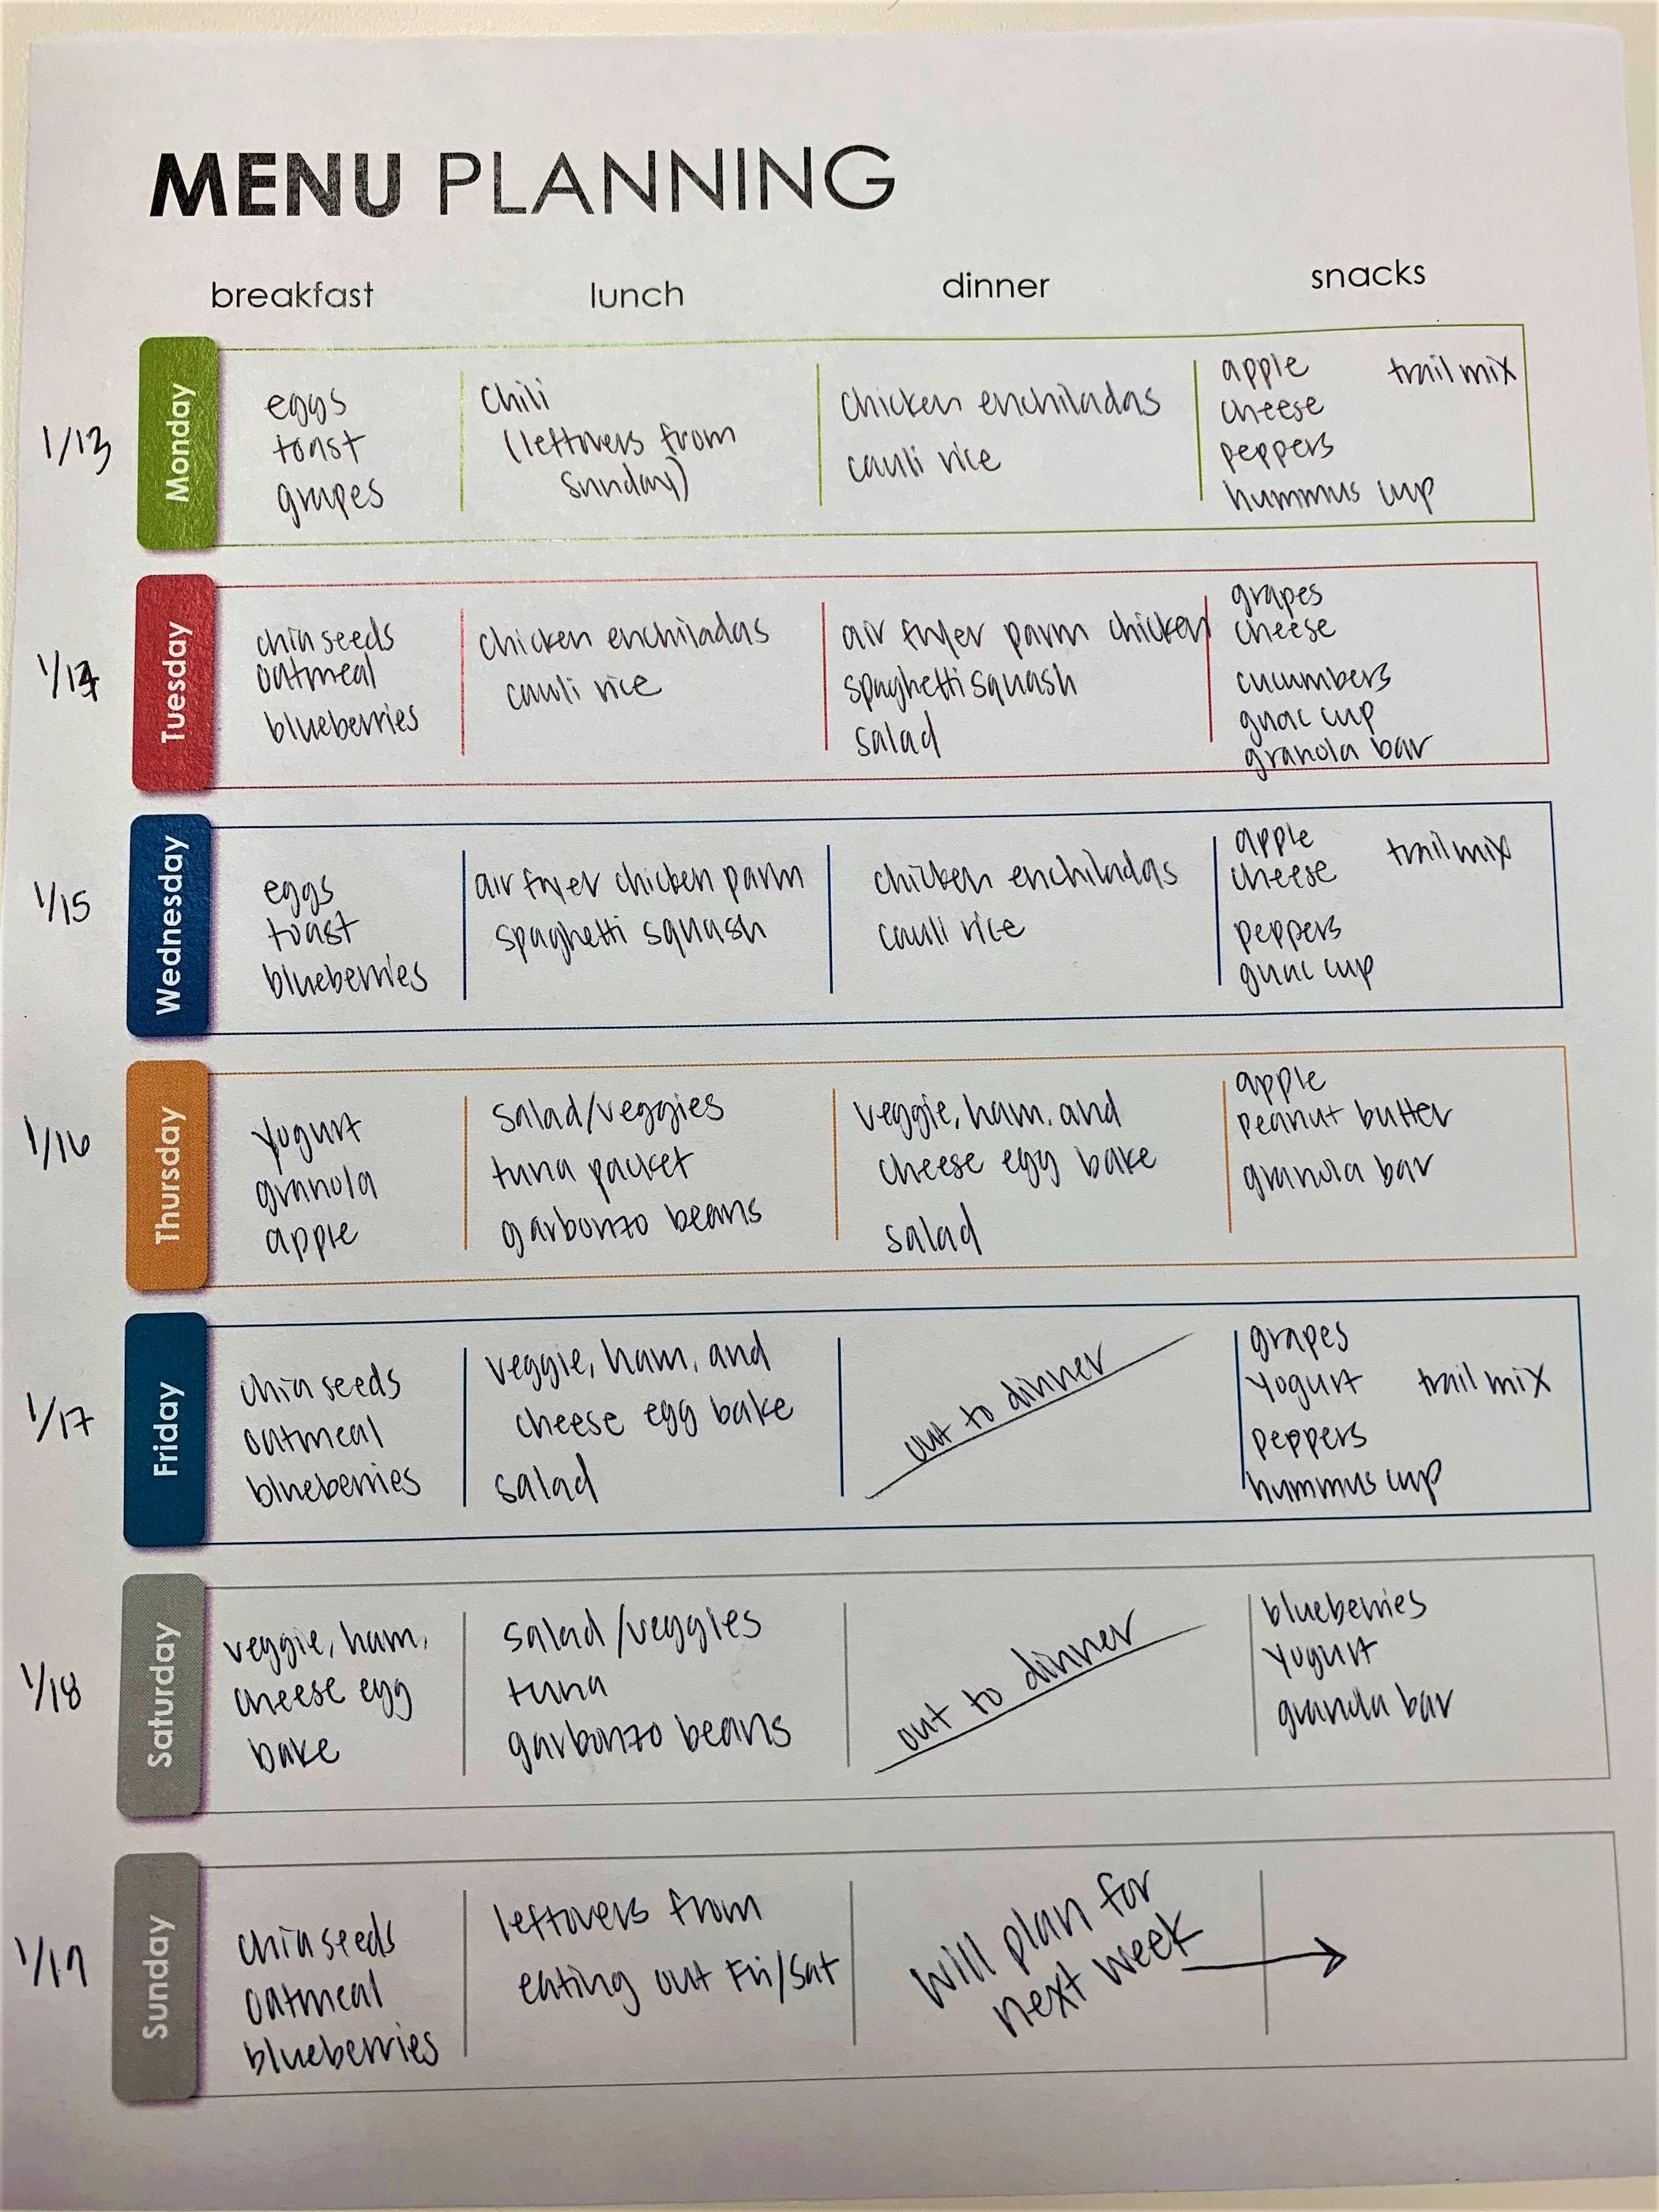 MENU PLANNING
breakfast lunch dinner snacks
1/13
Monday
eggs
toast
grapes
chili
(leftovers from
sunday)
chicken enchiladas
cauli rice
apple trail mix
cheese
peppers
hummus cup
1/14
Tuesday
chia seeds
oatmeal
blueberries
chicken enchiladas
cauli rice
air fryer parm chicken
spaghetti squash
salad
grapes
cheese
cucumbers
guac cup
granola bar
1/15
Wednesday
eggs
toast
blueberries
air fryer chicken parm
spaghetti squash
chicken enchiladas
cauli rice
apple trail mix
cheese
peppers
guac cup
1/16
Thursday
yogurt
granola
apple
salad/veggies
tuna packet
garbonzo beans
veggie, ham, and
cheese egg bake
salad
apple
peanut butter
granola bar
1/17
Friday
chia seeds
oatmeal
blueberries
veggie, ham, and
cheese egg bake
salad
out to dinner
grapes
yogurt trail mix
peppers
hummus cup
1/18
Saturday
veggie, ham,
cheese egg
bake
salad/veggies
tuna
garbonzo beans
out to dinner
blueberries
yogurt
granola bar
1/19
Sunday
chia seeds
oatmeal
blueberries
leftovers from
eating out Fri/Sat
will plan for
next week →